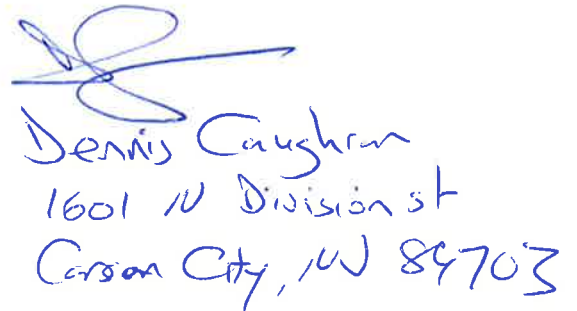 Dennis Caughron
1601 N Division st
Carson City, NV 89703